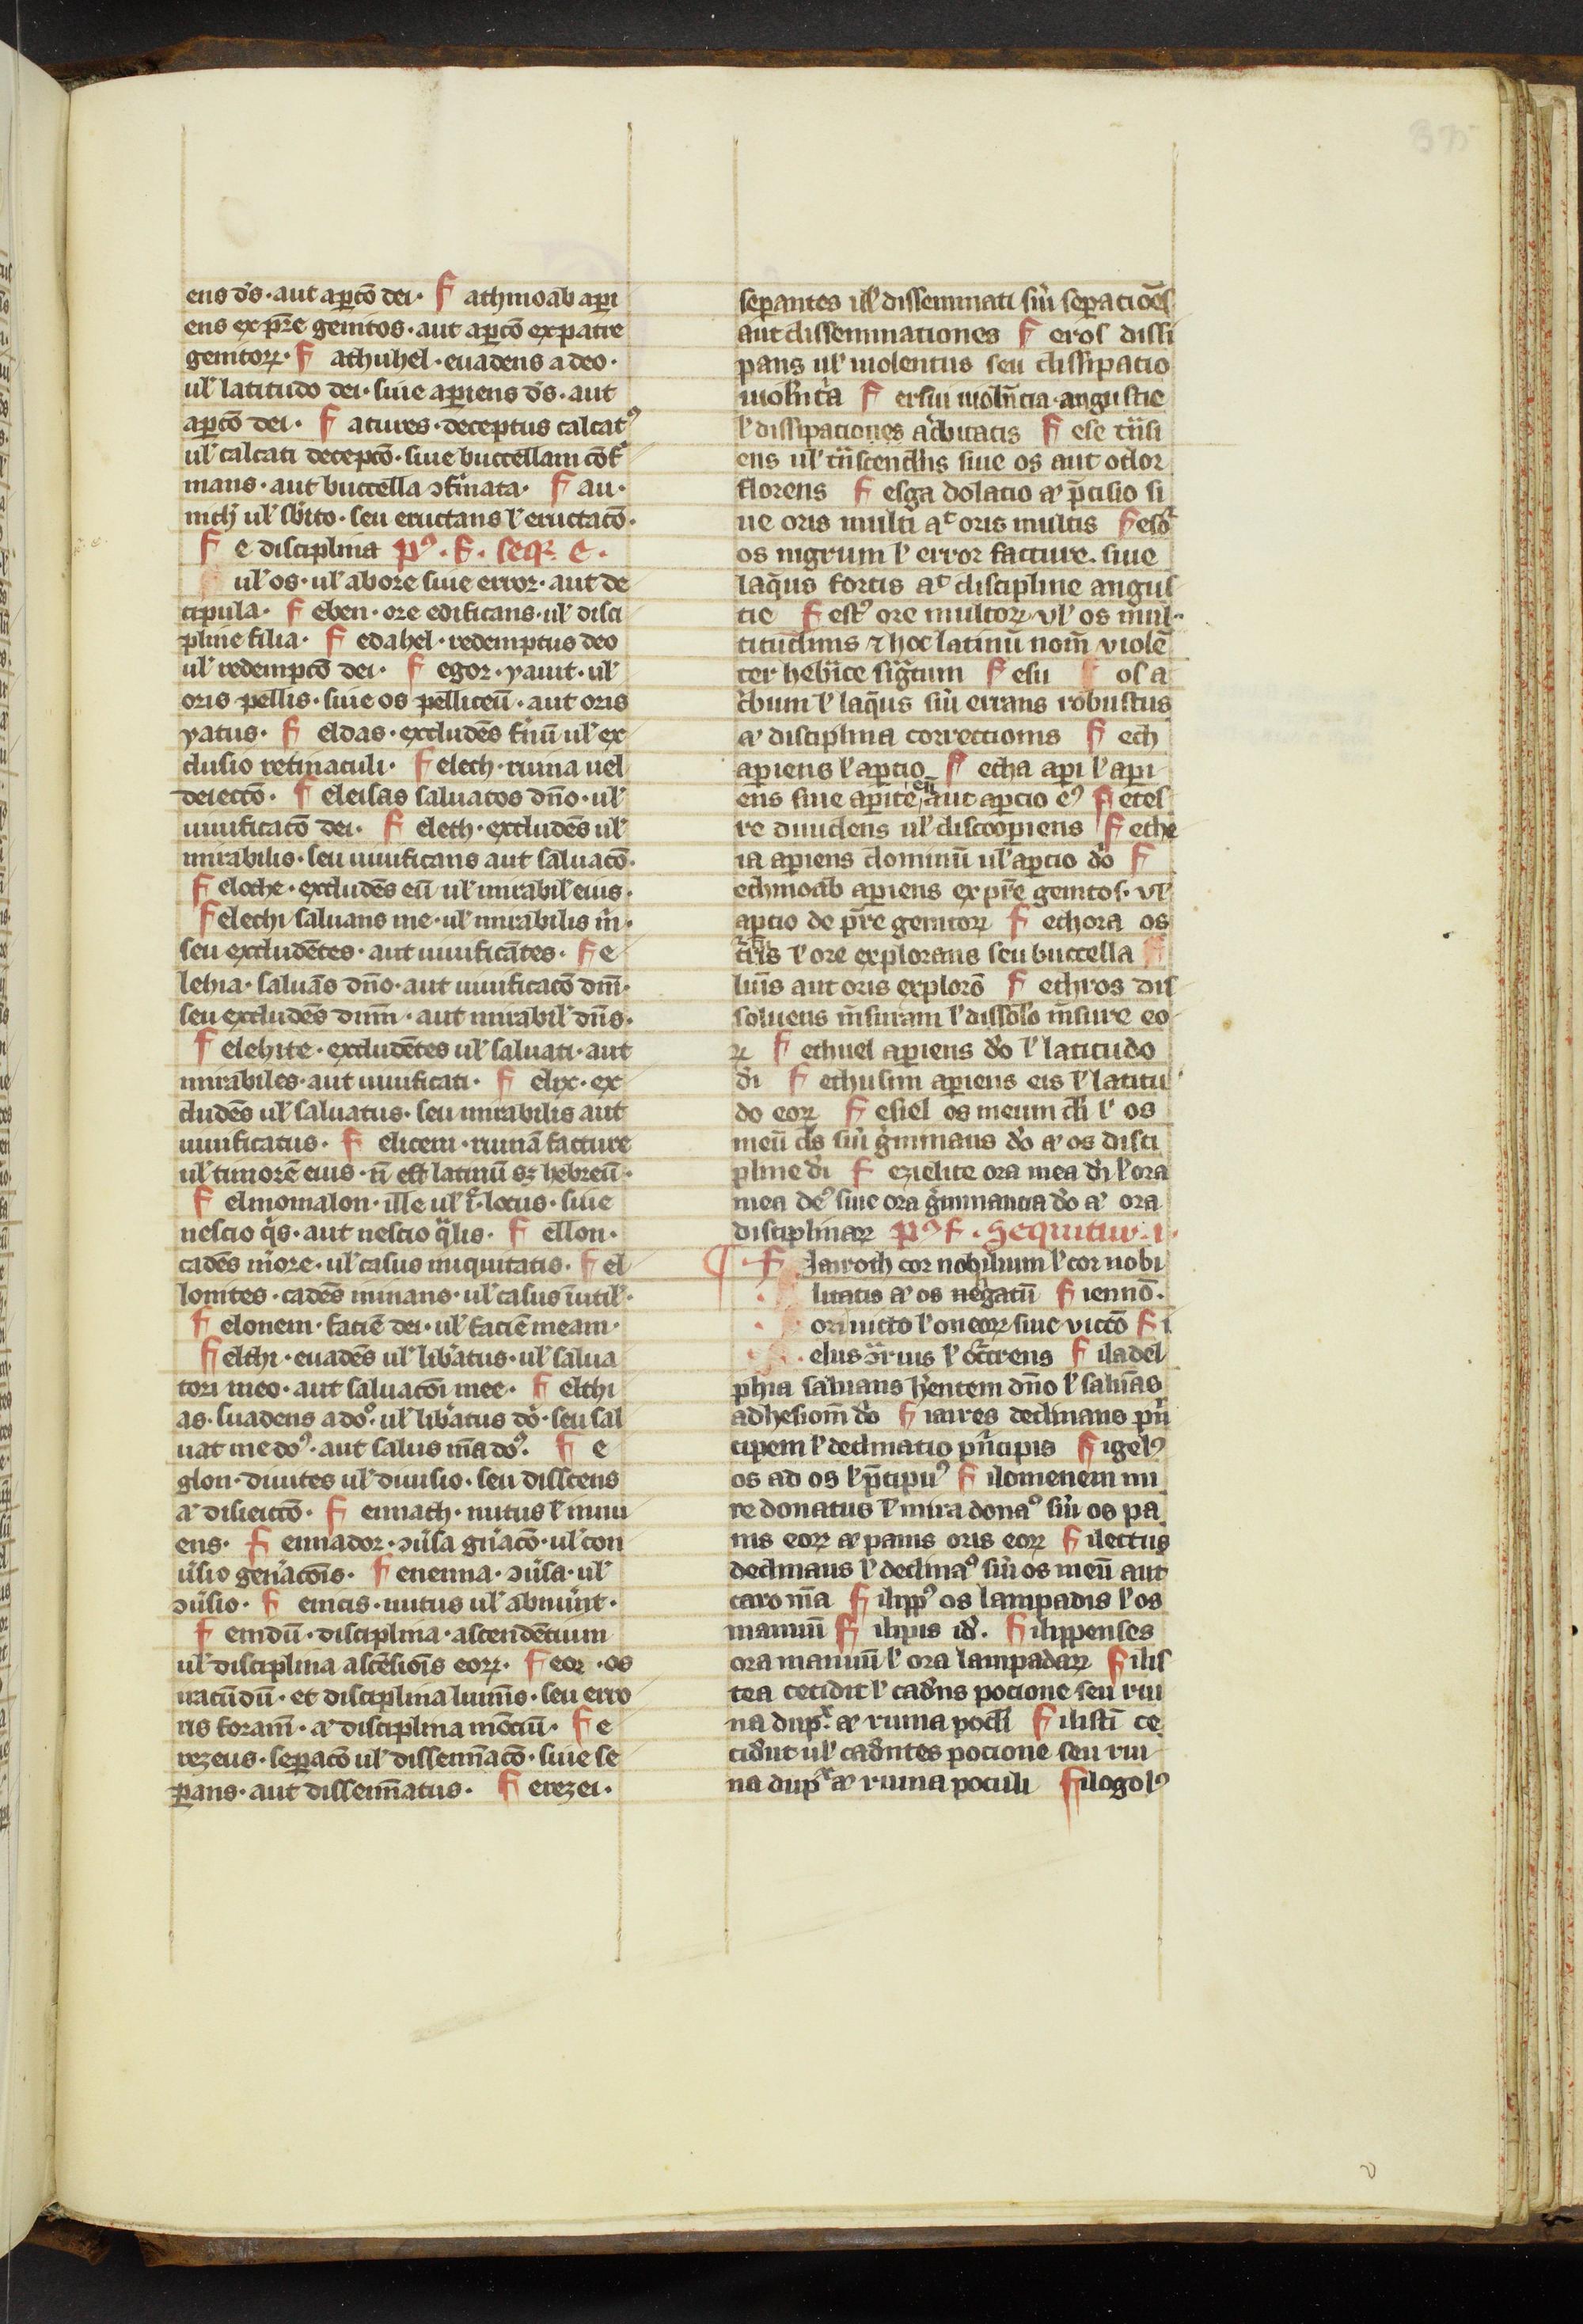 375
ens d̄s · aut ap̲cō dei · F athmoab api
ens ex pr̄e genitos · aut ap̲cō ex patre
genitoꝝ · F athuhel · euadens a deo ·
ul̕ latitudo dei · siue ap̲iens d̄s · aut
ap̲cō dei · F atures · deceptus calcatꝰ
ul̕ calcati decepcō · siue buccellam cōf̕
mans · aut buccella ɔf̕mata · F au ·
nich̕ ul̕ sb̕ito · seu eructans l̕ eructacō ·
F e disciplina pꝰ · F · seqr̕ e ·
ul̕ os · ul̕ ab ore siue error · aut de
cipula · F eben · ore edificans · ul̕ disci
pline filia · F edahel · redemptus deo
ul̕ redempcō dei · F egor · yauit · ul̕
oris pellis · siue os pelliceū · aut oris
yatus · F eldas · excludēs ul̕ ex
clusio retinaculi · F elech · ruina uel
deieccō · F eleisas saluatos dn̄o · ul̕
uiuificacō dei · F eleth · excludēs ul̕
mirabilis · seu uiuificans aut saluacō ·
F eloche · excludēs eū ul̕ mirabil̕ eius ·
F elechi saluans me · ul̕ mirabilis m̄ ·
seu excludētes · aut uiuificātes · F e
lehia · saluās dn̄o · aut uiuificacō dn̄i ·
seu excludēs dnm̄ · aut mirabil̕ dn̄s ·
F elehite · excludētes ul̕ saluati · aut
mirabiles · aut uiuificati · F elix · ex
cludēs ul̕ saluatus · seu mirabilis aut
uiuificatus · F elicem · ruinā facture
ul̕ timorē eius · n̄ est latinū sꝫ hebreū ·
F elmomalon · ille ul̕ · locus · siue
nescio q̕s · aut nescio q̄lis · F ellon ·
cadēs m̕ore · ul̕ casus iniquitatis · F el
lonites · cadēs minans · ul̕ casus īutil̕ ·
F elonem · faciē dei · ul̕ faciē meam ·
F elthi · euadēs ul̕ lib̕atus · ul̕ salua
tori meo · aut saluacōi mee · F elthi
as · suadens a dō · ul̕ lib̕atus dō · seu sal
uat me dō · aut salus m̄a dō · F e
glon · diuites ul̕ diuisio · seu disscens
a̕ disieictō · F ennach · nutus l̕ innu
ens · F ennador · ɔu̕sa gn̕acō · ul̕ con
u̕sio gen̕acōis · F enenna · ɔu̕sa · ul̕
ɔu̕sio · F encis · nutus ul̕ abnuūt ·
F endū · disciplina · ascendētium
ul̕ disciplina ascēsiōis eoꝝ · F eor · os
uacūdū · et disciplina luminīs · seu erro
ris foram̄ · a̕ disciplina mōciū · F e
rezeus · sep̲acō ul̕ dissemīacō · siue se
p̲ans · aut dissemīatus · F erezei ·
sep̲antes ul̕ disseminati siu̕ sep̲aciōes
aut disseminationes F eros dissi
pans ul̕ uiolentus seu dissipatio
uioln̄ta F ersiu uioln̄cia · angustie
l̕ dissipationes F ese t̄nsi
ens ul̕ t̄nscendēs siue os aut odor
florens F esga dolatio a̕ p̄cisio si
ue oris multi at̕ oris multis F eso̕
os nigrum l̕ error facture · siue
laq̄us fortis at̕ discipline angus
tie F est̕ ore multoꝝ ul̕ os mul ·
titudinis ⁊ hoc latinū nom̄ violē
ter hebr̕ice sig̕tum F esu os a
l̕ laq̄us siu̕ errans robustus
a̕ disciplina correctionis F ech
ap̲iens l̕ ap̲cio F echa ap̲i l̕ ap̲i
ens siue ap̲ite aut ap̲cio eꝰ F etes
re diuidens ul̕ discoop̲iens F eche
ia ap̲iens dominū ul̕ ap̲cio dō F
echmoab ap̲iens ex pr̄e genitos · ul̕
ap̲cio de pr̄e genitoꝝ F echora os
l̕ ore explorans seu buccella
luīs aut oris explorō F echros dis
soluens m̄suram l̕ dissolō m̄sure eo
ꝝ F echuel ap̲iens dō l̕ latitudo
di F echusim ap̲iens eis l̕ latitu
do eoꝝ F esiel os meum di l̕ os
meū ds siu̕ g̕minans dō a̕ os disci
pline di F ezielite ora mea di l̕ ora
mea deꝰ siue ora g̕minancia dō a̕ ora
disciplinaꝝ pꝰ F · sequitur · i ·
¶ · F Jairoth cor nobilium l̕ cor nobi
litatis a̕ os negatū F iennō ·
ori uicto l̕ ori eoꝝ siue victō F i
elus ɔ̄rius l̕ oc̄crens F iladel
phia saluans h̕entem dn̄o l̕ saluās
adhesiom̄ dō F iaires declinans p̄n
cipem l̕ declinatio p̄ncipis F igelꝰ
os ad os l̕ p̄cipuꝰ F ilomenem mi
re donatus l̕ mira donaꝰ siu̕ os pa
nis eoꝝ a̕ panis oris eoꝝ F ilectus
declinans l̕ declinaꝰ siu̕ os meū aut
caro m̄a F ilippꝰ os lampadis l̕ os
manuū F ilipis id̕ · F ilippenses
ora manuū l̕ ora lampadaꝝ F ilis
tea cecidit l̕ cad̕ns pocione seu rui
na dupx̕ a̕ ruina poc̕li F ilistī ce
cid̕ut ul̕ cad̕ntes pocione seu rui
na dupx̕ a̕ ruina poculi F ilogolꝰ
v